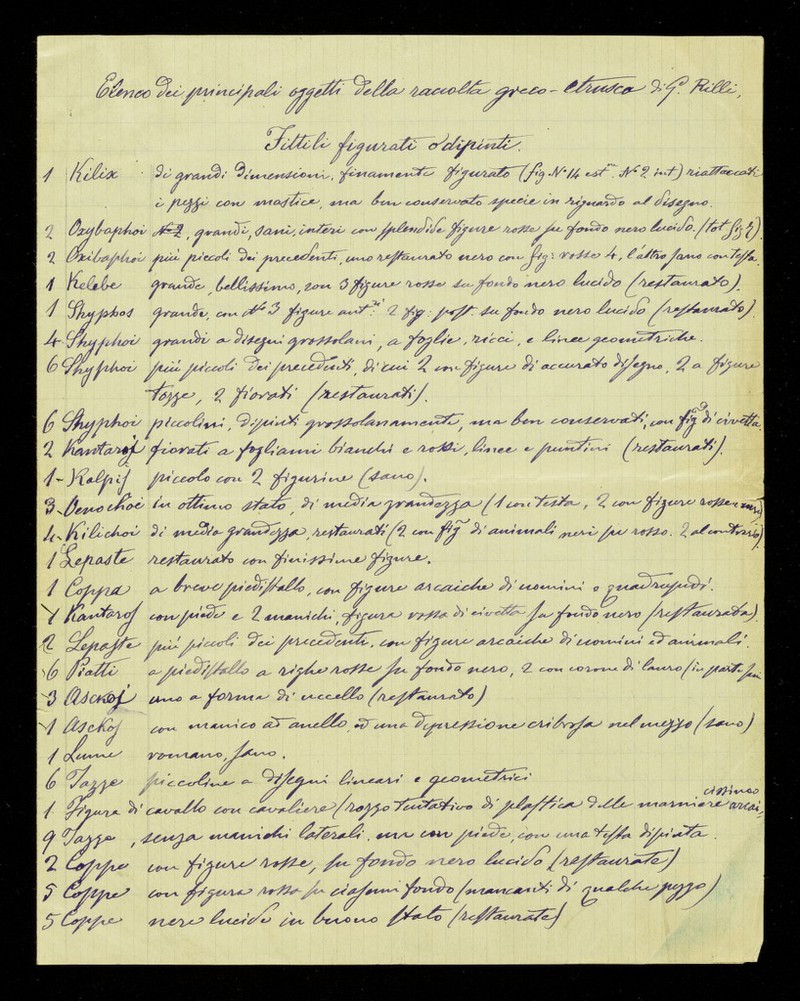 Elenco dei principali oggetti della raccolta greco-etrusca di G. Rilli,
Fittili figurati o dipinti.
1 Kilix di grandi dimensioni, finamente figurato (fig. N° 14 est. N° 2 int) riattaccati
i pezzi con mastice, ma ben conservato specie in riguardo al disegno.
2 Oxybaphoi N° 2, grandi, sani, interi con splendide figure rosse su fondo nero lucido. (tot. fig.
2 Oxibaphoi più piccoli dei precedenti, uno restaurato nero con fig: rosse 4, l'altro sano con testa.
1 Kelebe grande, bellissimo, con 3 figure rosse su fondo nero lucido (restaurato).
1 Skyphos grande, con N° 3 figure ant. 2 fig: post. su fondo nero lucido (restaurato)
4 Skyphoi grandi a disegni grossolani, a foglie, ricci, e linee geometriche.
6 Skyphoi più piccoli dei precedenti, di cui 2 con figure di accurato disegno, 2 a figure
tozze, 2 fiorati (restaurati).
6 Skyphoi piccolini, dipinti grossolanamente, ma ben conservati, con fig. di civetta.
2 Kantaroi fiorati a fogliami bianchi e rossi, linee e puntini (restaurati).
1 - Kalpis piccolo con 2 figurine (sano).
3 - Oenochoi in ottimo stato, di media grandezza (1 con testa, 2 con figure rosse e nere)
4 - Kilichoi di media grandezza, restaurati (2 con fig di animali neri su rosso. 2 al contrario)
1 Lepaste restaurato con finissime figure.
1 Coppa a breve piedistallo, con figure arcaiche di uomini e quadrupedi.
1 Kantaros con piede e 2 manichi, figura rossa di civetta su fondo nero (restaurata).
2 Lepaste più piccoli dei precedenti, con figure arcaiche di uomini ed animali.
6 Piatti a piedistallo a righe rosse su fondo nero, 2 con corone di lauro (in parte sani
3 Asckoi uno a forma di uccello (restaurato)
1 Asckos con manico ad anello, ed una depressione cribrosa nel mezzo (sano)
1 Lume romano, sano.
6 Tazze piccoline a disegni lineari e geometrici
1 Figura di cavallo con cavaliere (rozzo tentativo di plastica delle maniere arcai-
cissime
9 Tazze, senza manichi laterali, una con piede, con una testa dipinta.
2 Coppe con figure rosse, su fondo nero lucido (restaurate)
5 Coppe con figura rossa su ciascun fondo (mancanti di qualche pezzo)
5 Coppe nere lucide in buono stato (restaurate)